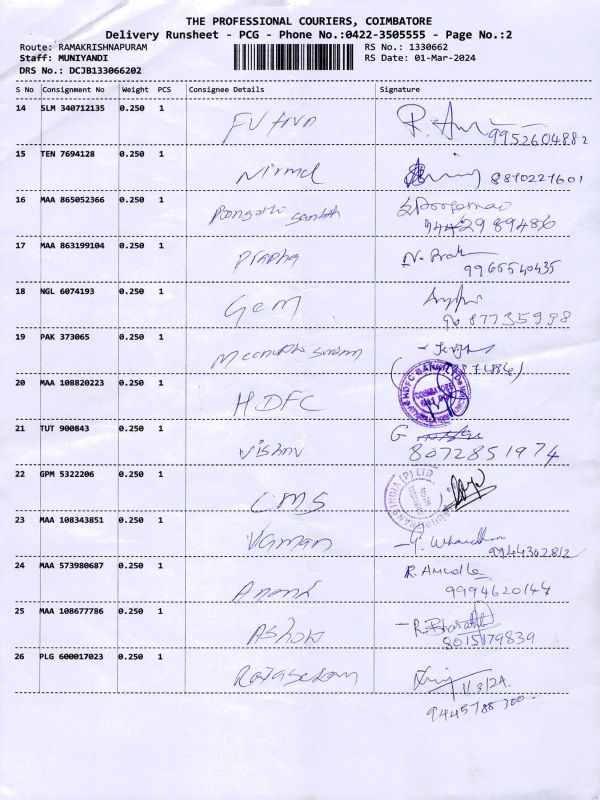 THE PROFESSIONAL COURIERS, COIMBATORE
Delivery Runsheet - PCG - Phone No.:0422-3505555 - Page No.:2
Route: RAMAKRISHNAPURAM RS No.: 1330662
Staff: MUNIYANDI RS Date: 01-Mar-2024
DRS No.: DCJB133066202
S No Consignment No Weight PCS Consignee Details Signature
14 SLM 340712135 0.250 1
9952604882
15 TEN 7694128 0.250 1 Nirmal 8870227601
16 MAA 865052366 0.250 1
9442989486
17 MAA 863199104 0.250 1 Prabha
9965540435
18 NGL 6074193 0.250 1 Gem
9687735998
19 PAK 373065 0.250 1
20 MAA 108820223 0.250 1 HDFC HDFC BANK LTD
COIMBATORE
21 TUT 900843 0.250 1 Vishnu G
8072851974
22 GPM 5322206 0.250 1 CMS INDIA (P) LTD
23 MAA 108343851 0.250 1 Vaman
9944302812
24 MAA 573980687 0.250 1 Anand R. Amudha
9994620144
25 MAA 108677786 0.250 1 Ashok R. Bharathi
8015179839
26 PLG 600017023 0.250 1 Rajasekaran
1/3/24.
9445788300